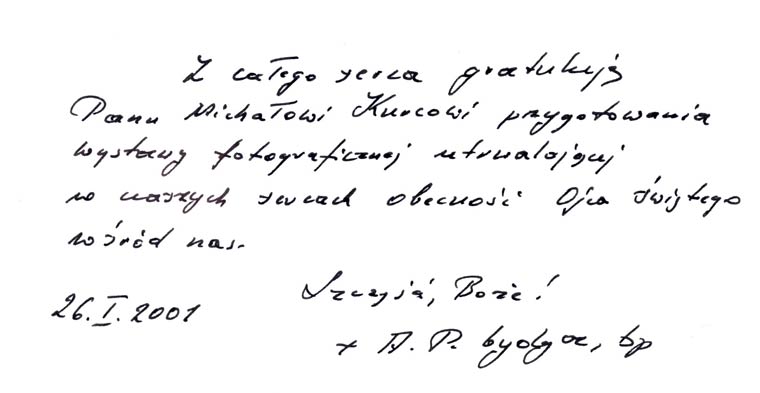 Z całego serca gratuluję
Panu Michałowi Kurcowi przygotowania
wystawy fotograficznej utrwalającej
w naszych sercach obecność Ojca Świętego
wśród nas.
Szczęść, Boże!
26.I.2001
+ A. P. bp